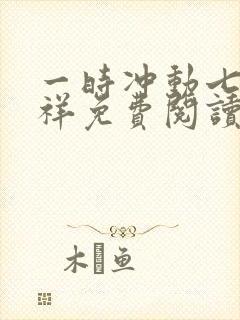 一時冲動七
祥免費閱讀
木 鱼